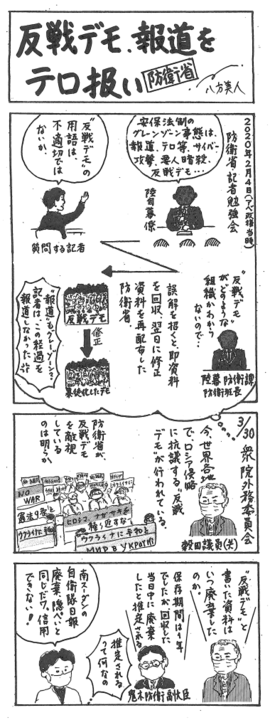 反戦デモ、報道を
テロ扱い 防衛省
八方美人
2020年2月4日(安倍政権当時)
防衛省記者勉強会
安保法制の
グレーゾーン事態は、
報道、テロ等、サイバー
攻撃、要人暗殺、
反戦デモ…
陸自幕僚
"反戦デモ"の
用語は、
不適切では
ないか
質問する記者
"反戦デモ"
がどのような
組織かわから
ないので…
陸幕防衛課
防衛班長
誤解を招くと、即資料
を回収、翌日に修正
資料を再配布した
防衛省。
反戦デモ
修正
暴徒化したデモ
"報道もグレーゾーン"!
記者は、この経過を
報道しなかった…
3/30 衆院外務委員会
今、世界各地
で、ロシア侵略
に抗議する"反戦
デモ"が行われている。
穀田議員(共)
防衛省が、
反戦デモ
を敵視
している
のは明らか
NO
WAR
憲法9条を
ウクライナに
ヒロシマ・ナガサキを
繰り返すな!
ウクライナに平和を!
МИР В УКРАИНЕ
"反戦デモ"と
書いた資料は
いつ廃棄した
のか。
保存期間は1年
でしたが、回収して
当日中に廃棄
したと推定される
鬼木防衛副大臣
推定される
って何なの
南スーダンの
自衛隊日報
廃棄、隠ぺいと
同じだワ。信用
できない!